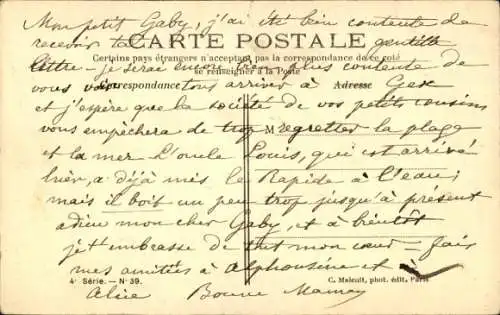 Mon petit Gaby, j'ai été bien contente de
recevoir ta gentille
CARTE POSTALE
Certains pays étrangers n'acceptant pas la correspondance de ce côté
se renseigner à la Poste
lettre je serai encore plus contente de
Correspondance
Adresse
vous voir tous arriver à Gex
et j'espère que la société de vos petits cousins
vous empêchera de trop regretter la plage
M
et la mer L'oncle Louis, qui est arrivé
hier, a déjà mis le Rapide à l'eau;
mais il boit un peu trop jusqu'à présent
adieu mon cher Gaby, et à bientôt
je t'embrasse de tout mon cœur = fais
mes amitiés à Alphonsine et à
4e Série. - No 39.
C. Malcuit, phot. édit., Paris
Alice Bonne Maman